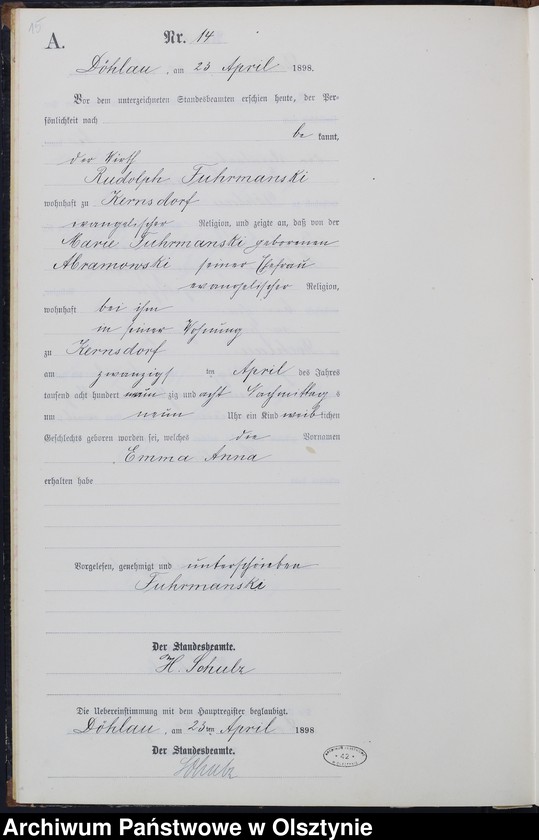 15
A.
Nr. 14
Döhlau, am 23 April 1898.
Vor dem unterzeichneten Standesbeamten erschien heute, der Per-
sönlichkeit nach
be kannt,
der Wirth
Rudolph Fuhrmanski
wohnhaft zu Kernsdorf
evangelischer Religion, und zeigte an, daß von der
Marie Fuhrmanski geborenen
Abramowski seiner Ehefrau
evangelischer Religion,
wohnhaft bei ihm
in seiner Wohnung
zu Kernsdorf
am zwanzigsten April des Jahres
tausend acht hundert neun zig und acht Nachmittags
um neun Uhr ein Kind weiblichen
Geschlechts geboren worden sei, welches die Vornamen
Emma Anna
erhalten habe
Vorgelesen, genehmigt und unterschrieben
Fuhrmanski
Der Standesbeamte.
H. Schulz
Die Uebereinstimmung mit dem Hauptregister beglaubigt.
Döhlau, am 23ten April 1898
Der Standesbeamte.
Schulz
* 42 *
Archiwum Państwowe w Olsztynie